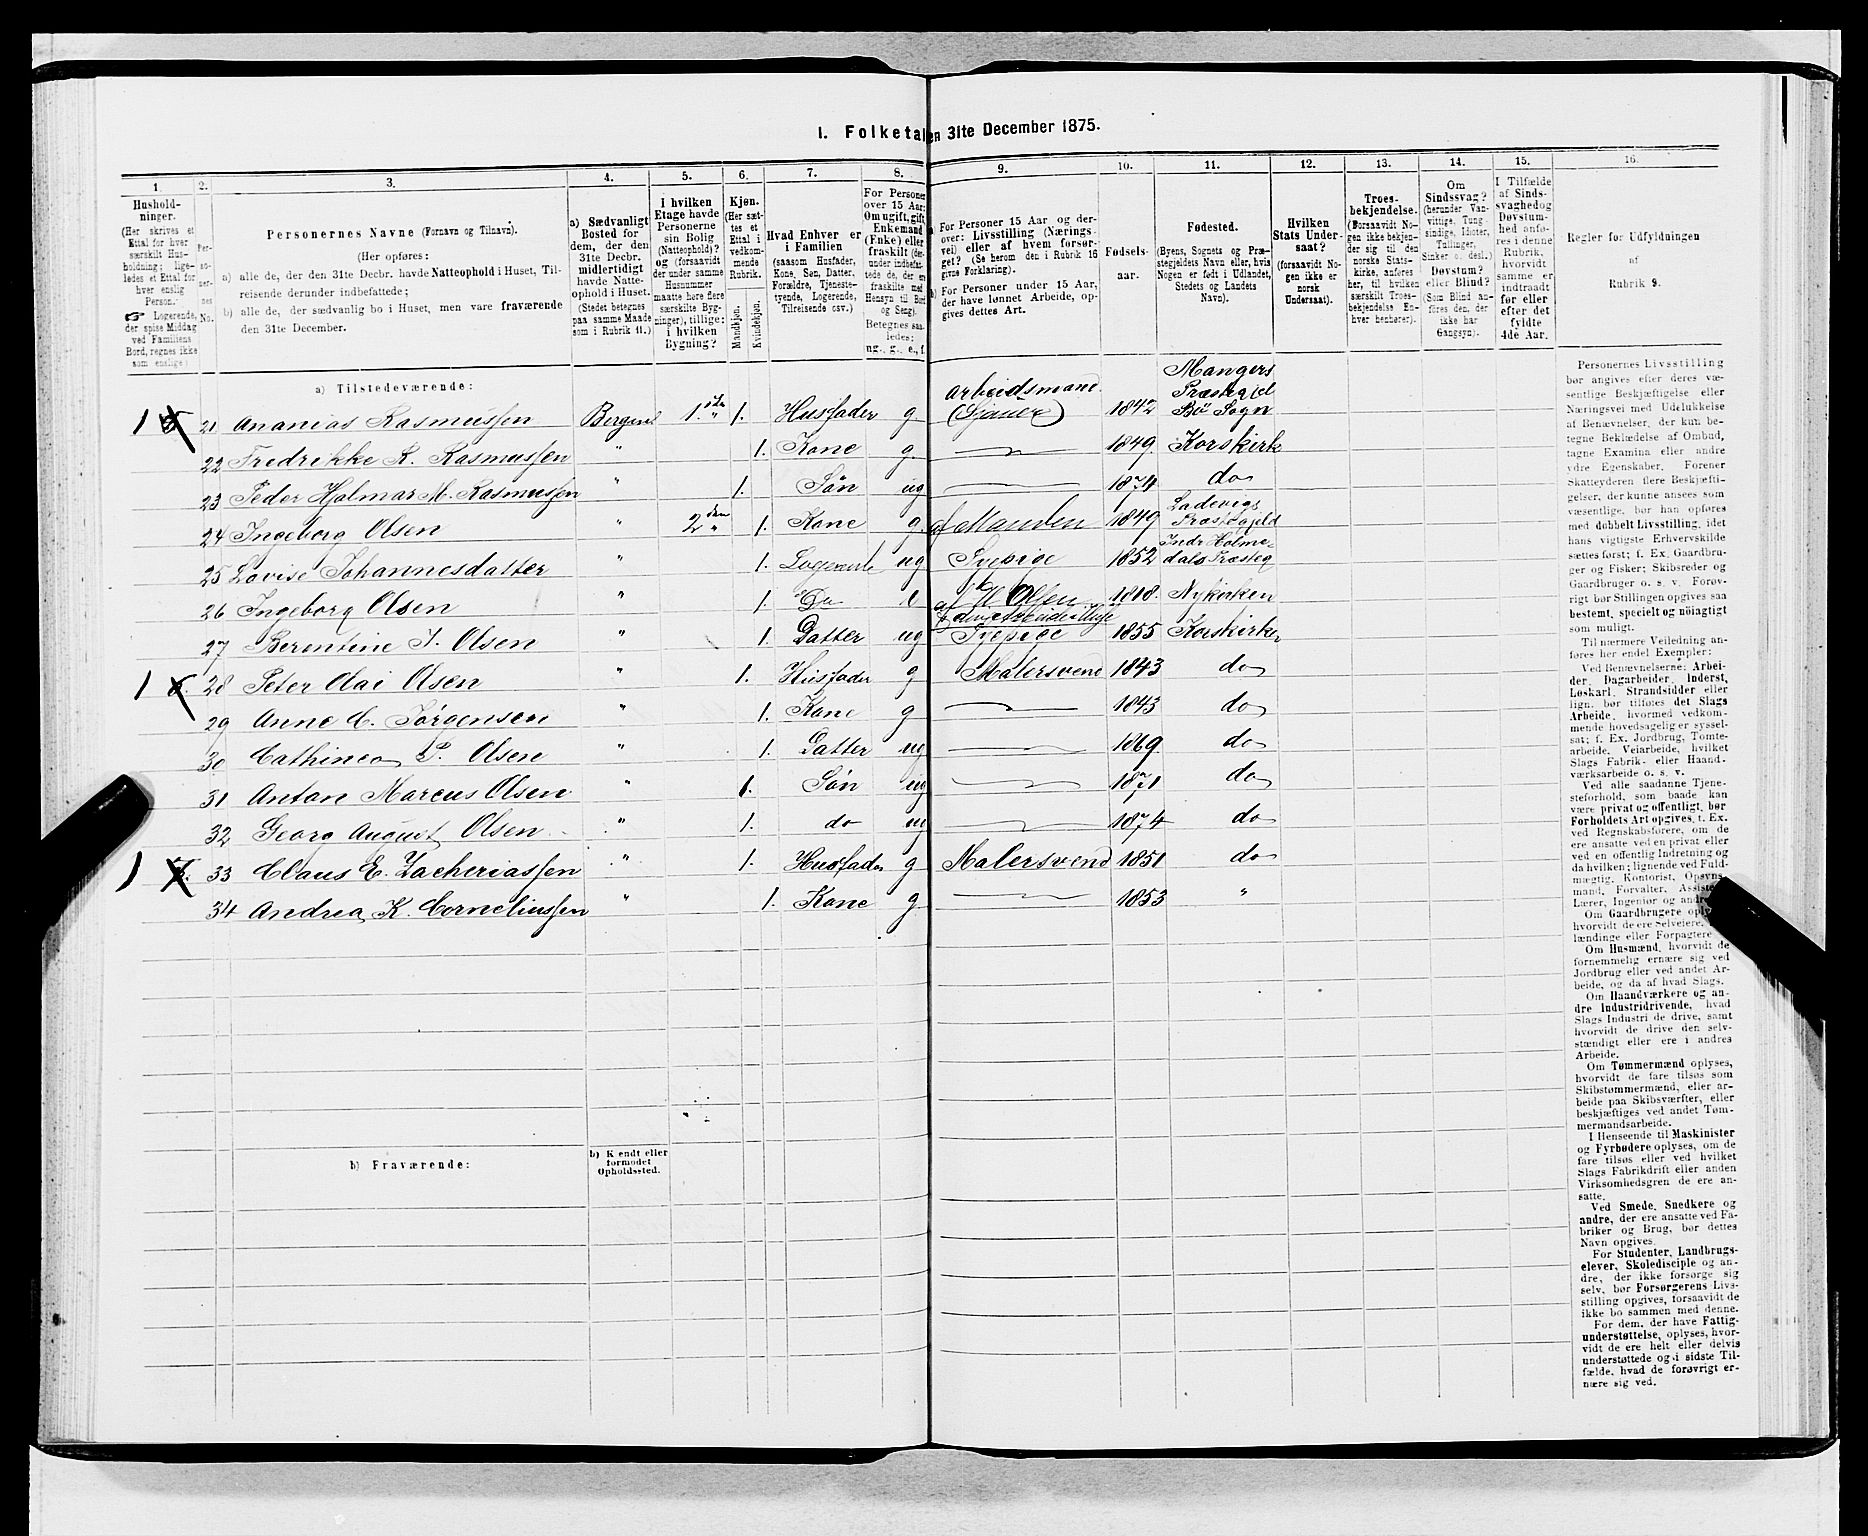 I. Folketal en 31te December 1875.
1. 2. 3. 4. 5. 6. 7. 8. 9. 10. 11. 12. 13. 14. 15. 16.
Hushold-
ninger.
(Her skrives et
Ettal for hver
særskilt Hus-
holdning; lige-
ledes et Ettal for
hver enslig
Person.
☞ Logerende,
der spise Middag
ved Familiens
Bord, regnes ikke
som enslige.)
Per-
so-
ner-
nes
No.
Personernes Navne (Fornavn og Tilnavn).
(Her opføres:
a) alle de, der den 31te Decbr. havde Natteophold i Huset, Til-
reisende derunder indbefattede;
b) alle de, der sædvanlig bo i Huset, men vare fraværende
den 31te December.
a) Sædvanligt
Bosted for
dem, der den
31te Decbr.
midlertidigt
havde Natte-
ophold i Huset.
(Stedet betegnes
paa samme Maade
som i Rubrik 11.)
I hvilken
Etage havde
Personerne
sin Bolig
(Natteophold)?
og (forsaavidt
der under samme
Husnummer
maatte høre flere
særskilte Byg-
ninger), tillige:
i hvilken
Bygning?
Kjøn.
(Her sæt-
tes et
Ettal i
vedkom-
mende
Rubrik.
Mandkjøn.
Kvindekjøn.
Hvad Enhver er
i Familien
(saasom Husfader,
Kone, Søn, Datter,
Forældre, Tjeneste-
tyende, Logerende,
Tilreisende osv.)
For Personer
over 15 Aar:
Om ugift, gift,
Enkemand
(Enke) eller
fraskilt (der-
under indbefat-
tede de, der ere
fraskilte med
Hensyn til Bord
og Seng).
Betegnes saa-
ledes:
ug., g., e., f.
a) For Personer 15 Aar og der-
over: Livsstilling (Nærings-
vei) eller af hvem forsør-
get? (Se herom den i Rubrik 16
givne Forklaring).
b) For Personer under 15 Aar,
der have lønnet Arbeide, op-
gives dettes Art.
Fødsels-
aar.
Fødested.
(Byens, Sognets og Præ-
stegjeldets Navn eller, hvis
Nogen er født i Udlandet,
Stedets og Landets
Navn).
Hvilken
Stats Under-
saat?
(forsaavidt No-
gen ikke er
norsk
Undersaat).
Troes-
bekjendelse.
(Forsaavidt No-
gen ikke bekjen-
der sig til den
norske Stats-
kirke, anføres
her, til hvilken
særskilt Troes-
bekjendelse En-
hver henhører).
Om
Sindssvag?
(herunder Van-
vittige, Tung-
sindige, Idioter,
Tullinger,
Sinker o. desl.)
Døvstum?
eller Blind?
(Som Blind an-
føres den, der
ikke har
Gangsyn).
I Tilfælde
af Sinds-
svaghed og
Døvstum-
hed anfø-
res i denne
Rubrik,
hvorvidt
samme er
indtraadt
før eller
efter det
fyldte
4de Aar.
Regler for Udfyldningen
af
Rubrik 9.
a) Tilstedeværende:
1 21 Ananias Rasmussen Bergen 1. 1. Husfader g Arbeidsmand (Sjauer) 1842 Mangers Præstegjel Bö Sogn
22 Fredrikke K. Rasmussen " 1. Kone g 1849. Korskirk
23 Peder Hjalmar M. Rasmussen " 1. Søn ug 1874 do
24 Ingeborg Olsen " 2 1. Kone g. af Manden 1849 Ladevigs Præstegjeld
25 Lovise Johannesdatter " 1. Logerende ug Sypige 1852 Indr Holme- dals Præsteg
26 Ingeborg Olsen " 1. Do e 1818. Nykirken
27 Berentine I. Olsen " 1. Datter ug Sypige 1855 Korskirke
1 28 Peter Olai Olsen " 1. Husfader g Malersvend 1843 do
29 Anne C. Jørgensen " 1. Kone g 1843 do
30 Cathinca P. Olsen " 1. Datter ug 1869 do
31 Anton Marcus Olsen " 1. Søn ug 1871 do
32 Georg August Olsen " 1. do ug 1874 do
1 33 Claus E. Zacheriassen " 1. Husfader g Malersvend 1851 do
34 Andrea K. Corneliussen " 1. Kone g 1853 "
b) Fraværende:
b) Kjendt eller
formodet
Opholdssted.
Personernes Livsstilling
bør angives efter deres væ-
sentlige Beskjæftigelse eller
Næringsvei med Udelukkelse
af Benævnelser, der kun be-
tegne Beklædelse af Ombud,
tagne Examina eller andre
ydre Egenskaber. Forener
Skatteyderen flere Beskjæfti-
gelser, der kunne ansees som
væsentlige, bør han opføres
med dobbelt Livsstilling, idet
hans vigtigste Erhvervskilde
sættes først; f. Ex. Gaardbru-
ger og Fisker; Skibsreder og
Gaardbruger o. s. v. Forøv-
rigt bør Stillingen opgives saa
bestemt, specielt og nøiagtigt
som muligt.
Til nærmere Veiledning an-
føres her endel Exempler:
Ved Benævnelserne: Arbei-
der, Dagarbeider, Inderst,
Løskarl, Strandsidder eller
lign. bør tilføres det Slags
Arbeide, hvormed vedkom-
mende hovedsagelig er syssel-
sat; f. Ex. Jordbrug, Tomte-
arbeide, Veiarbeide, hvilket
Slags Fabrik- eller Haand-
værksarbeide o. s. v.
Ved alle saadanne Tjene-
steforhold, som baade kan
være privat og offentligt, bør
Forholdets Art opgives, t. Ex.
ved Regnskabsførere, om de
ere ansatte ved en privat eller
ved en offentlig Indretning og
da hvilken; lignende ved Fuld-
mægtig, Kontorist, Opsyns-
mand, Forvalter, Assistent,
Lærer, Ingeniør og andre.
Om Gaardbrugere oplyses,
hvorvidt de ere Selveiere,
lændinge eller Forpagtere
Om Husmænd, hvorvidt de
fornemmelig ernære sig ved
Jordbrug eller ved andet Ar-
beide, og da af hvad Slags.
Om Haandværkere og an-
dre Industridrivende, hvad
Slags Industri de drive, samt
hvorvidt de drive den selv-
stændigt eller ere i andres
Arbeide.
Om Tømmermænd oplyses,
hvorvidt de fare tilsøs som
Skibstømmermænd, eller ar-
beide paa Skibsværfter, eller
beskjæftiges ved andet Tøm-
mermandsarbeide.
I Henseende til Maskinister
og Fyrbødere oplyses, om de
fare tilsøs eller ved hvilket
Slags Fabrikdrift eller anden
Virksomhedsgren de ere an-
satte.
Ved Smede, Snedkere og
andre, der ere ansatte ved Fa-
briker og Brug, bør dettes
Navn opgives.
For Studenter, Landbrugs-
elever, Skoledisciple og an-
dre, der ikke forsørge sig
selv, bør Forsørgerens Livs-
stilling opgives, forsaavidt de
ikke bo sammen med denne.
For dem, der have Fattig-
understøttelse, oplyses, hvor-
vidt de ere helt eller delvis
understøttede og i sidste Til-
fælde, hvad de forøvrigt er-
nære sig ved.